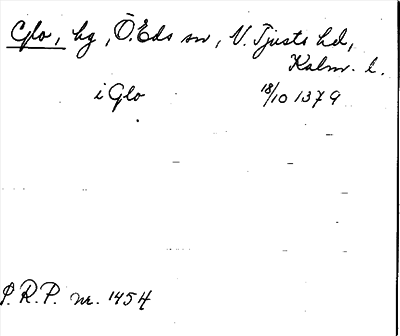 Glo, hg, Ö. Eds sn, N. Tjusts hd,
Kalm. l.
i Glo 18/10 1379
P.R.P. nr. 1454